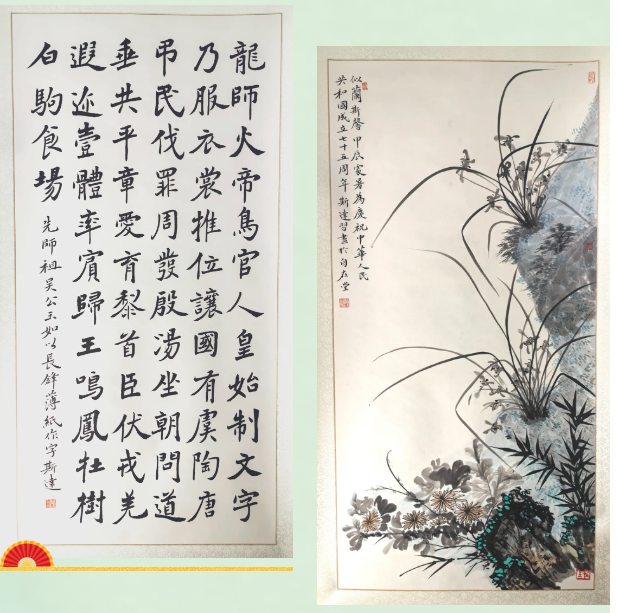 龍師火帝鳥官人皇始制文字
乃服衣裳推位讓國有虞陶唐
吊民伐罪周發殷湯坐朝問道
垂共平章愛育黎首臣伏戎羌
遐迩壹體率賓歸王鳴鳳在樹
白駒食場
先師祖吴公玉如以長鋒薄紙作字斯達
似蘭斯馨 甲辰暑為慶祝中華人民
共和國成立七十五周年斯達習畫於自在堂